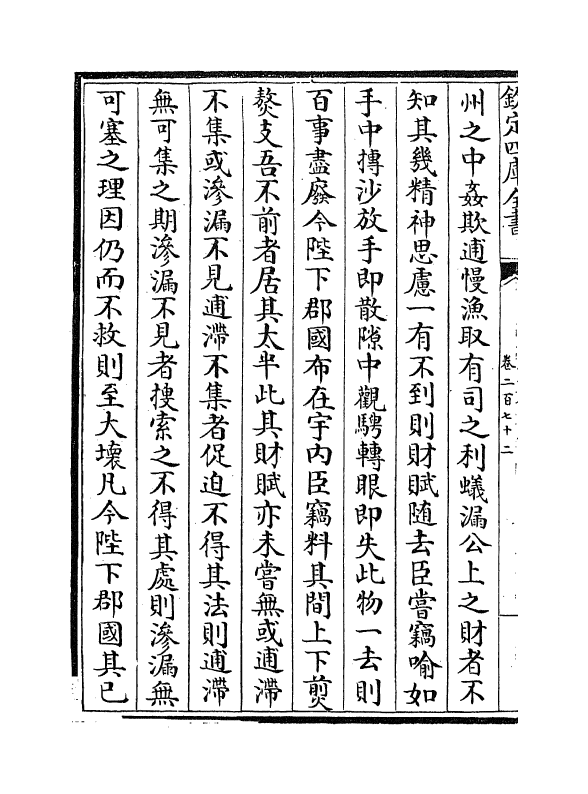 欽定四庫全書
卷二百七十二
州之中姦欺逋慢漁取有司之利蟻漏公上之財者不
知其幾精神思慮一有不到則財賦随去臣嘗竊喻如
手中摶沙放手即散隙中觀騁轉眼即失此物一去則
百事盡廢今陛下郡國布在宇内臣竊料其間上下煎
熬支吾不前者居其太半此其財賦亦未嘗無或逋滯
不集或滲漏不見逋滯不集者促迫不得其法則逋滯
無可集之期滲漏不見者搜索之不得其處則滲漏無
可塞之理因仍而不救則至大壞凡今陛下郡國其已